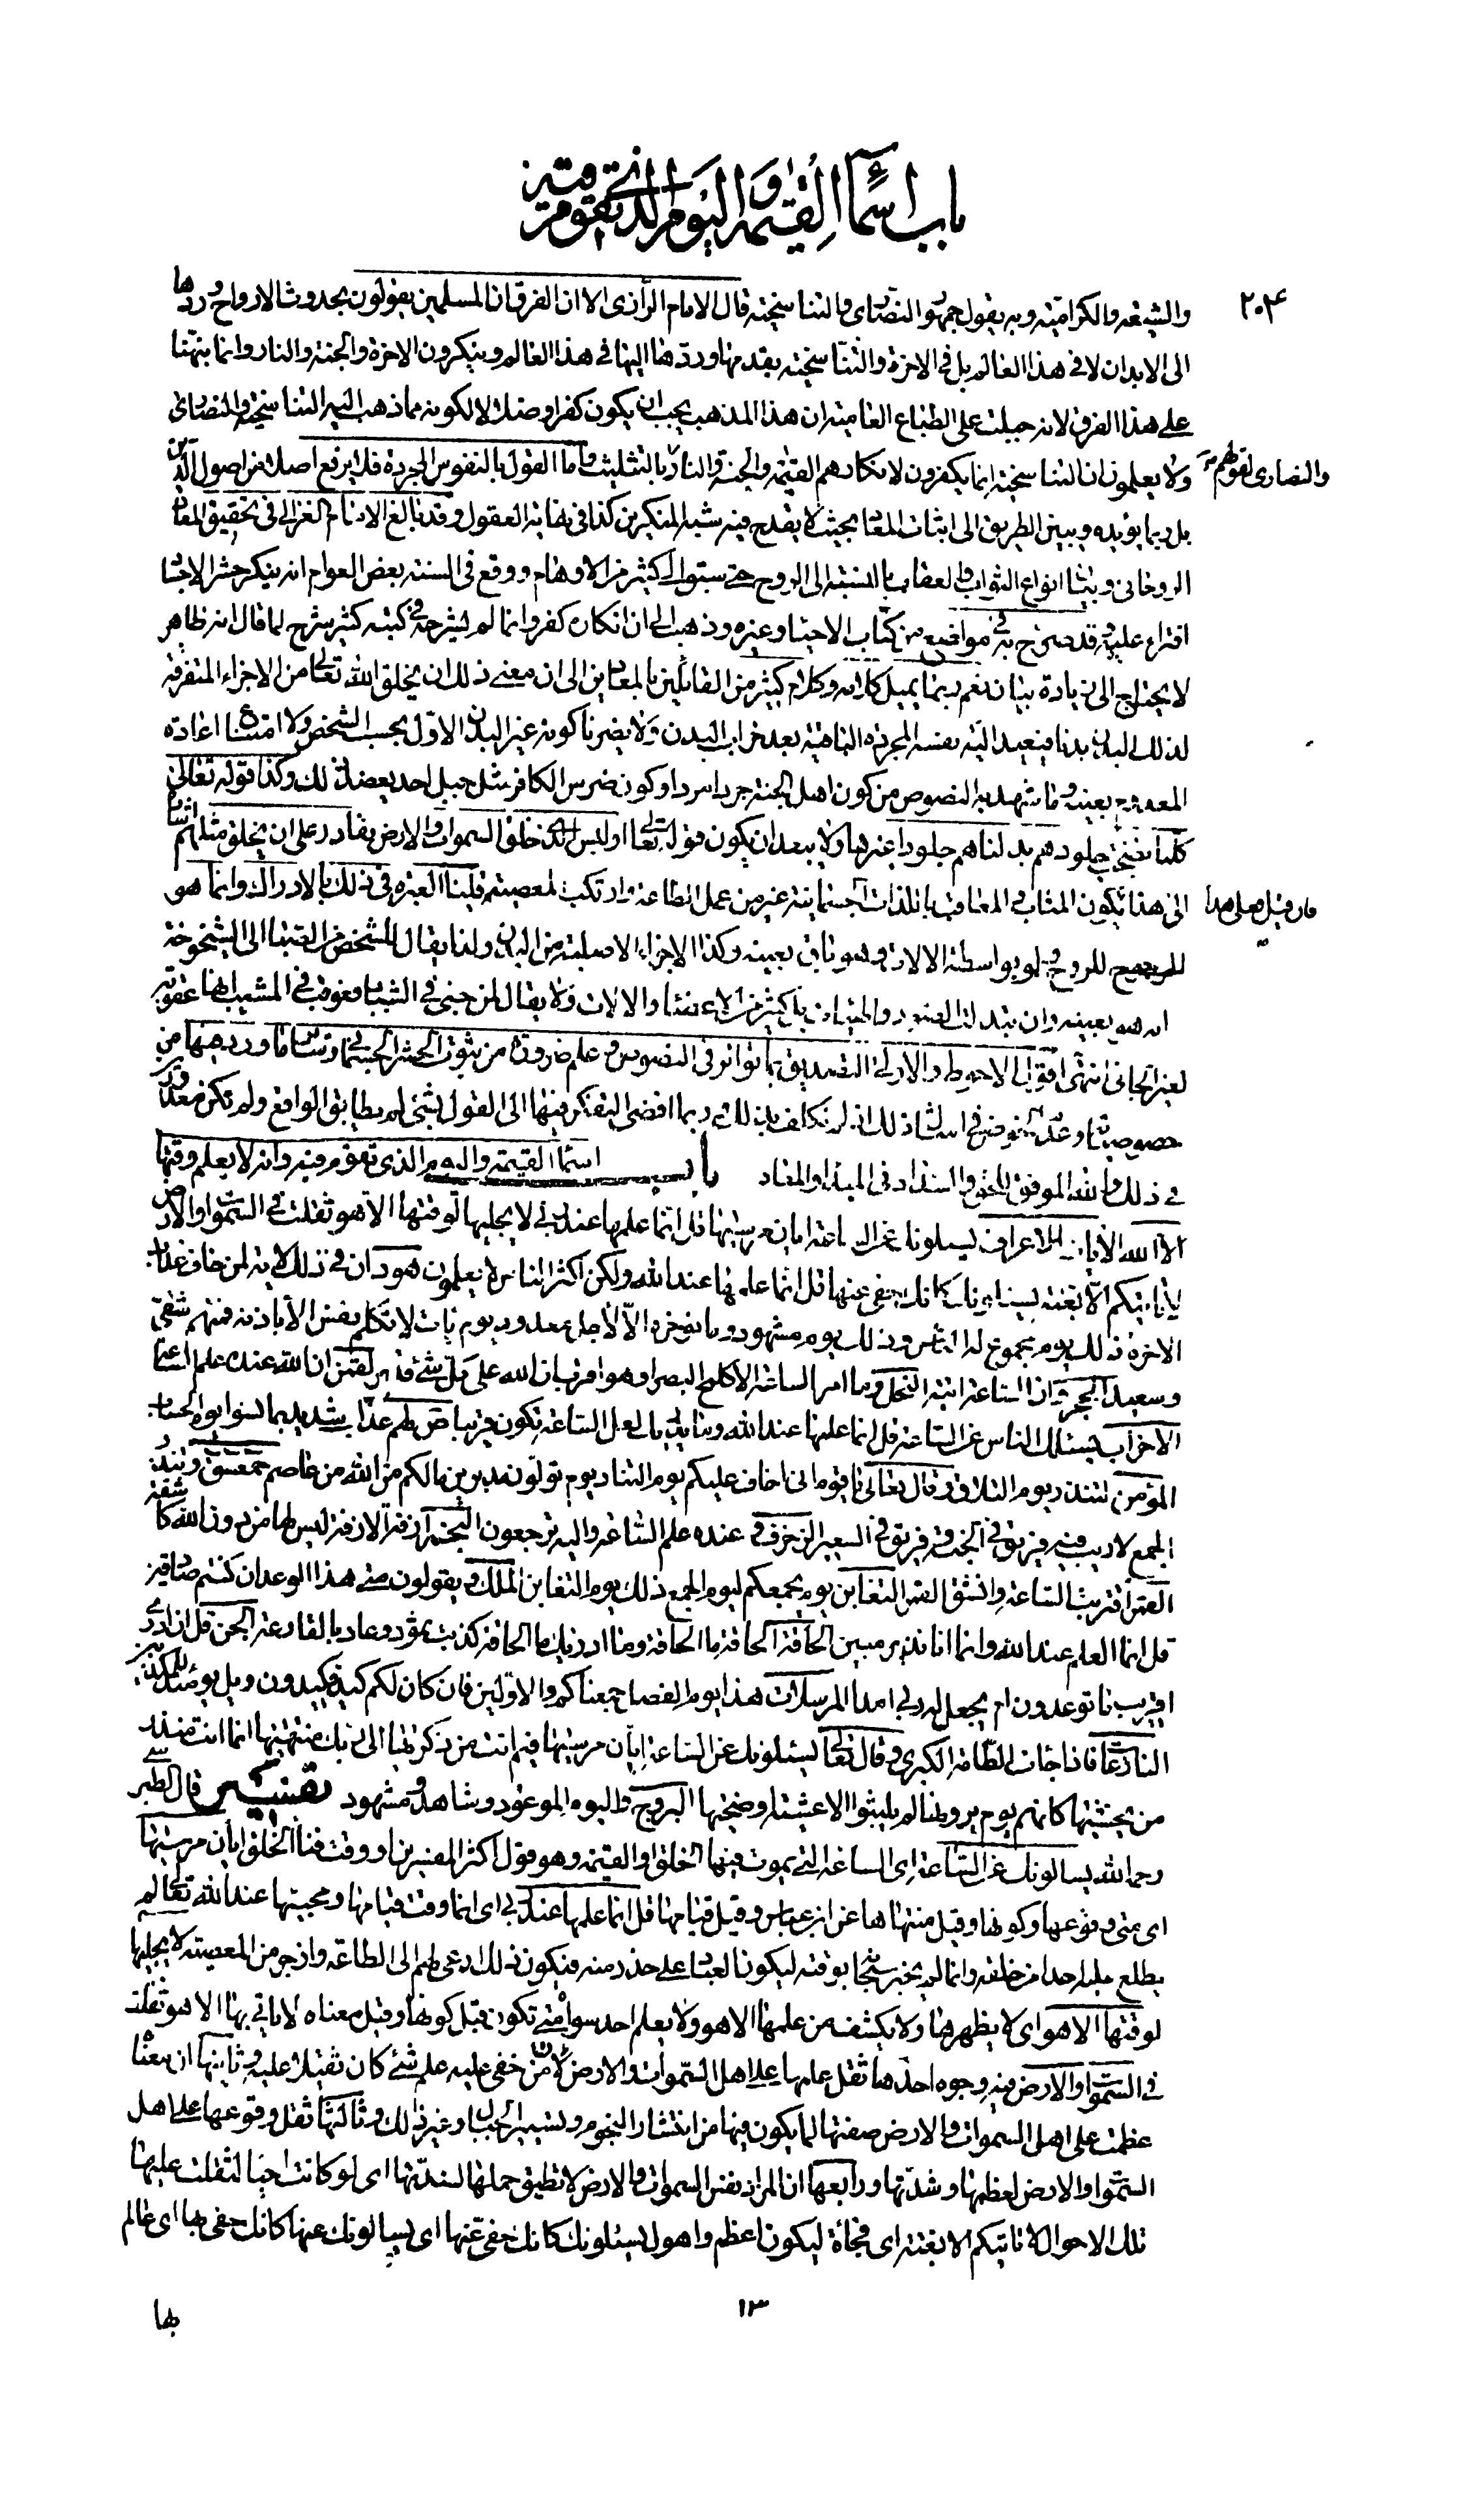 باب اسمآء القيٰمة واليوم الذى تقوم فيه
٢٠٤
والشيعة والكرامية وبه يقول جمهور النصارى والتناسخية قال الامام الرازى الا ان الفرق ان المسلمين يقولون بحدوث الارواح وردها
الى الابدان لا فى هذا العالم بل فى الاخرة والتناسخية بقدمها وردها اليها فى هذا العالم وينكرون الاخرة والجنة والنار وانما نبهنا
على هذا الفرق لانه جبلت على الطباع العامية ان هذا المذهب يجب ان يكون كفرا وضلالا لكونه مما ذهب اليه التناسخية والنصارى
ولا يعلمون ان التناسخية انما يكفرون لانكارهم القيٰمة والجنة والنار بالتثليث واما القول بالنفوس المجردة فلا يرفع اصلا من اصول الدين
والنصارى لقولهم
بل ربما يؤيده ويبين الطريق الى اثبات المعاد بحيث لا يقدح فيه شبه المنكرين كذا فى نهاية العقول وقد بالغ الامام الغزالى فى تحقيق المعاد
الروحانى وبيان انواع الثواب والعقاب بالنسبة الى الروح حتى سبق الى كثير من الاوهام ووقع فى السنة بعض العوام انه ينكر حشر الاجساد
افتراء عليه وقد صرح به فى مواضع من كتاب الاحياء وغيره وذهب الى ان انكاره كفر وانما لم يشرحه فى كتبه كثير شرح لما قال انه ظاهر
لا يحتاج الى زيادة بيان نعم ربما يميل كلامه وكلام كثير من القائلين بالمعادين الى ان معنى ذلك ان يخلق الله تعالى من الاجزاء المتفرقة
لذلك البدن بدنا فيعيد اليه نفسه المجردة الباقية بعد خراب البدن ولا يضرنا كونه غير البدن الاول بحسب الشخص ولا امتناع اعادة
المعدوم بعينه وما شهد به النصوص من كون اهل الجنة جردا مردا وكون ضرس الكافر مثل جبل احد يعضد ذلك وكذا قوله تعالى
كلما نضجت جلودهم بدلناهم جلودا غيرها ولا يبعد ان يكون قوله تعالى اوليس الذى خلق السموات والارض بقادر على ان يخلق مثلهم اشارة
الى هذا يكون المثاب والمعاقب باللذات الجسمانية غير من عمل الطاعة وارتكب المعصية قلنا العبرة فى ذلك بالادراك وانما هو
فان قيل فعلى هذا
للروح ولو بواسطة الالات وهو باق بعينه وكذا الاجزاء الاصلية من البدن ولذا يقال للشخص من الصبا الى الشيخوخة
انه هو بعينه وان تبدلت الصور والهيئات بل كثير من الاعضاء والالات ولا يقال لمن جنى فى الشباب فعوقب فى المشيب انها عقوبة
لغير الجانى انتهى اقول الاحوط والاولى التصديق بما تواتر فى النصوص وعلم ضرورة من ثبوت الحشر الجسمانى وسائر ما ورد فيها من
خصوصياته وعدم الخوض فى امثال ذلك اذ لم نكلف بذلك وربما افضى التفكر فيها الى القول بشئ لم يطابق الواقع ولم نكن معذورين
فى ذلك والله الموفق للحق والسداد فى المبدا والمعاد باب اسماء القيٰمة واليوم الذى تقوم فيه وانه لا يعلم وقتها
الا الله الأيات الاعراف يسئلونك عن الساعة ايان مرسيها قل انما علمها عند ربى لا يجليها لوقتها الا هو ثقلت فى السموات والارض
لا تاتيكم الا بغتة يسئلونك كانك حفى عنها قل انما علمها عند الله ولكن اكثر الناس لا يعلمون هود ان فى ذلك لاية لمن خاف عذاب
الاخرة ذلك يوم مجموع له الناس وذلك يوم مشهود وما نؤخره الا لاجل معدود يوم يات لا تكلم نفس الا باذنه فمنهم شقى
وسعيد الحجر وان الساعة لاتية النحل وما امر الساعة الا كلمح البصر او هو اقرب ان الله على كل شئ قدير لقمن ان الله عنده علم الساعة
الاحزاب يسئلك الناس عن الساعة قل انما علمها عند الله وما يدريك لعل الساعة تكون قريبا ص لهم عذاب شديد بما نسوا يوم الحساب
المؤمن لتنذر يوم التلاق وقال تعالى يا قوم انى اخاف عليكم يوم التناد يوم تولون مدبرين ما لكم من الله من عاصم حمعسق وتنذر
يوم الجمع لا ريب فيه فريق فى الجنة وفريق فى السعير الزخرف وعنده علم الساعة واليه ترجعون النجم ازفة الازفة ليس لها من دون الله كاشفة
القمر اقتربت الساعة وانشق القمر التغابن يوم يجمعكم ليوم الجمع ذلك يوم التغابن الملك ويقولون متى هذا الوعد ان كنتم صادقين
قل انما العلم عند الله وانما انا نذير مبين الحاقة الحاقة ما الحاقة وما ادريك ما الحاقة كذبت ثمود وعاد بالقارعة الجن قل ان ادرى
اقريب ما توعدون ام يجعل له ربى امدا المرسلات هذا يوم الفصل جمعناكم والاولين فان كان لكم كيد فكيدون ويل يومئذ للمكذبين
النازعات فاذا جاءت الطامة الكبرى وقال تعالى يسئلونك عن الساعة ايان مرسيها فيم انت من ذكرٰيها الى ربك منتهيها انما انت منذر
من يخشيها كانهم يوم يرونها لم يلبثوا الا عشية او ضحيها البروج واليوم الموعود وشاهد ومشهود تفسير قال الطبرسى
رحمه الله يسالونك عن الساعة اى الساعة التى يموت فيها الخلق او القيمة وهو قول اكثر المفسرين او وقت فناء الخلق ايان مرسيها
اى متى وقوعها وكونها وقيل منتهاها عن ابن عباس وقيل قيامها قل انما علمها عند ربى اى انما وقت قيامها ومجيئها عند الله تعالى لم
يطلع عليه احدا من خلقه وانما لم يخبر سبحانه بوقته ليكون العباد على حذر منه فيكون ذلك ادعى لهم الى الطاعة وازجر من المعصية لا يجليها
لوقتها الا هو اى لا يظهرها ولا يكشف من علمها الا هو ولا يعلم احد سواه متى تكون قبل كونها وقيل معناه لا ياتى بها الا هو ثقلت
فى السموات والارض فيه وجوه احدها ثقل علمها على اهل السموات والارض لان من خفى عليه علم شئ كان ثقيلا عليه وثانيها ان معناه
عظمت على اهل السموات والارض صفتها لما يكون فيها من انتشار النجوم وتسيير الجبال وغير ذلك وثالثها ثقل وقوعها على اهل
السموات والارض لعظمها وشدتها ورابعها ان المراد نفس السموات والارض لا تطيق حملها لشدتها اى لو كانت احياء لثقلت عليها
تلك الاحوال لا تاتيكم الا بغتة اى فجأة ليكون اعظم واهول يسئلونك كانك حفى عنها اى يسالونك عنها كانك حفى بها اى عالم
١٣
بها